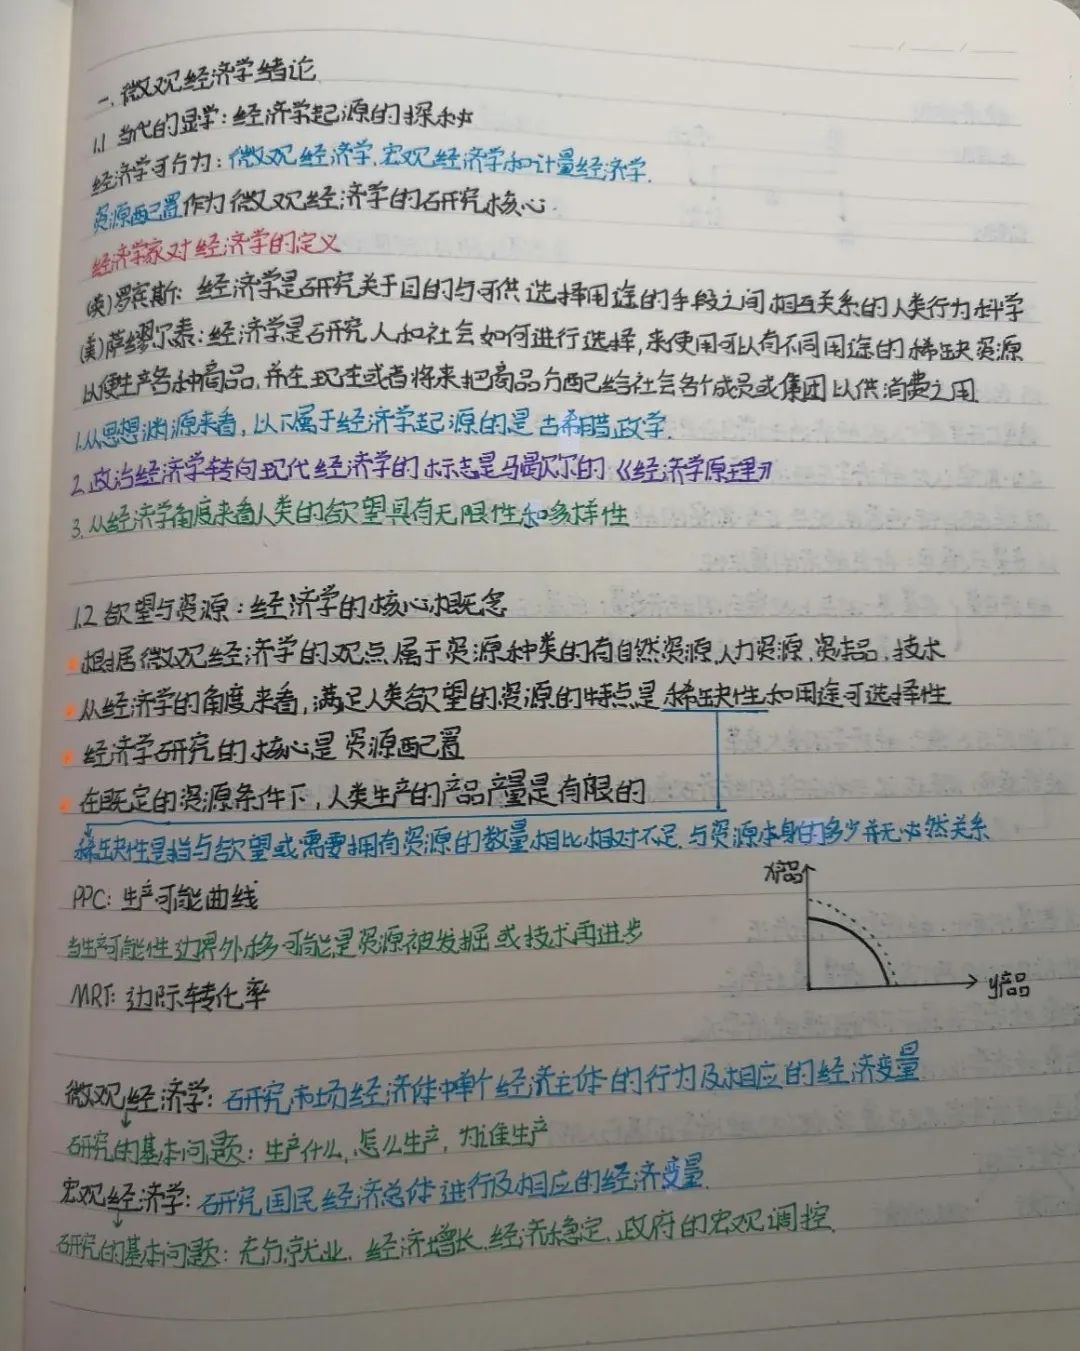 一、微观经济学绪论
1.1 当代的显学：经济学起源的探秘
经济学可分为：微观经济学、宏观经济学和计量经济学.
资源配置作为微观经济学的研究核心.
经济学家对经济学的定义
(英)罗宾斯：经济学是研究关于目的与可供选择用途的手段之间相互关系的人类行为科学
(美)萨缪尔森：经济学是研究人和社会如何进行选择，来使用可以有不同用途的稀缺资源
以便生产各种商品，并在现在或者将来把商品分配给社会各个成员或集团以供消费之用
1.从思想渊源来看，以下属于经济学起源的是古希腊政学.
2.政治经济学转向现代经济学的标志是马歇尔的《经济学原理》
3.从经济学角度来看人类的欲望具有无限性和多样性
1.2 欲望与资源：经济学的核心概念
根据微观经济学的观点属于资源种类的有自然资源、人力资源、资本品、技术
从经济学的角度来看，满足人类欲望的资源的特点是稀缺性和用途可选择性
经济学研究的核心是资源配置
在既定的资源条件下，人类生产的产品产量是有限的
稀缺性是指与欲望或需要拥有资源的数量相比相对不足.与资源本身的多少并无必然关系
PPC：生产可能曲线
x产品
当生产可能性边界外移可能是资源被发掘或技术再进步
MRT：边际转化率
y产品
微观经济学：研究市场经济体中单个经济主体的行为及相应的经济变量
研究的基本问题：生产什么、怎么生产，为谁生产
宏观经济学：研究国民经济总体进行及相应的经济变量.
研究的基本问题：充分就业、经济增长、经济稳定、政府的宏观调控.